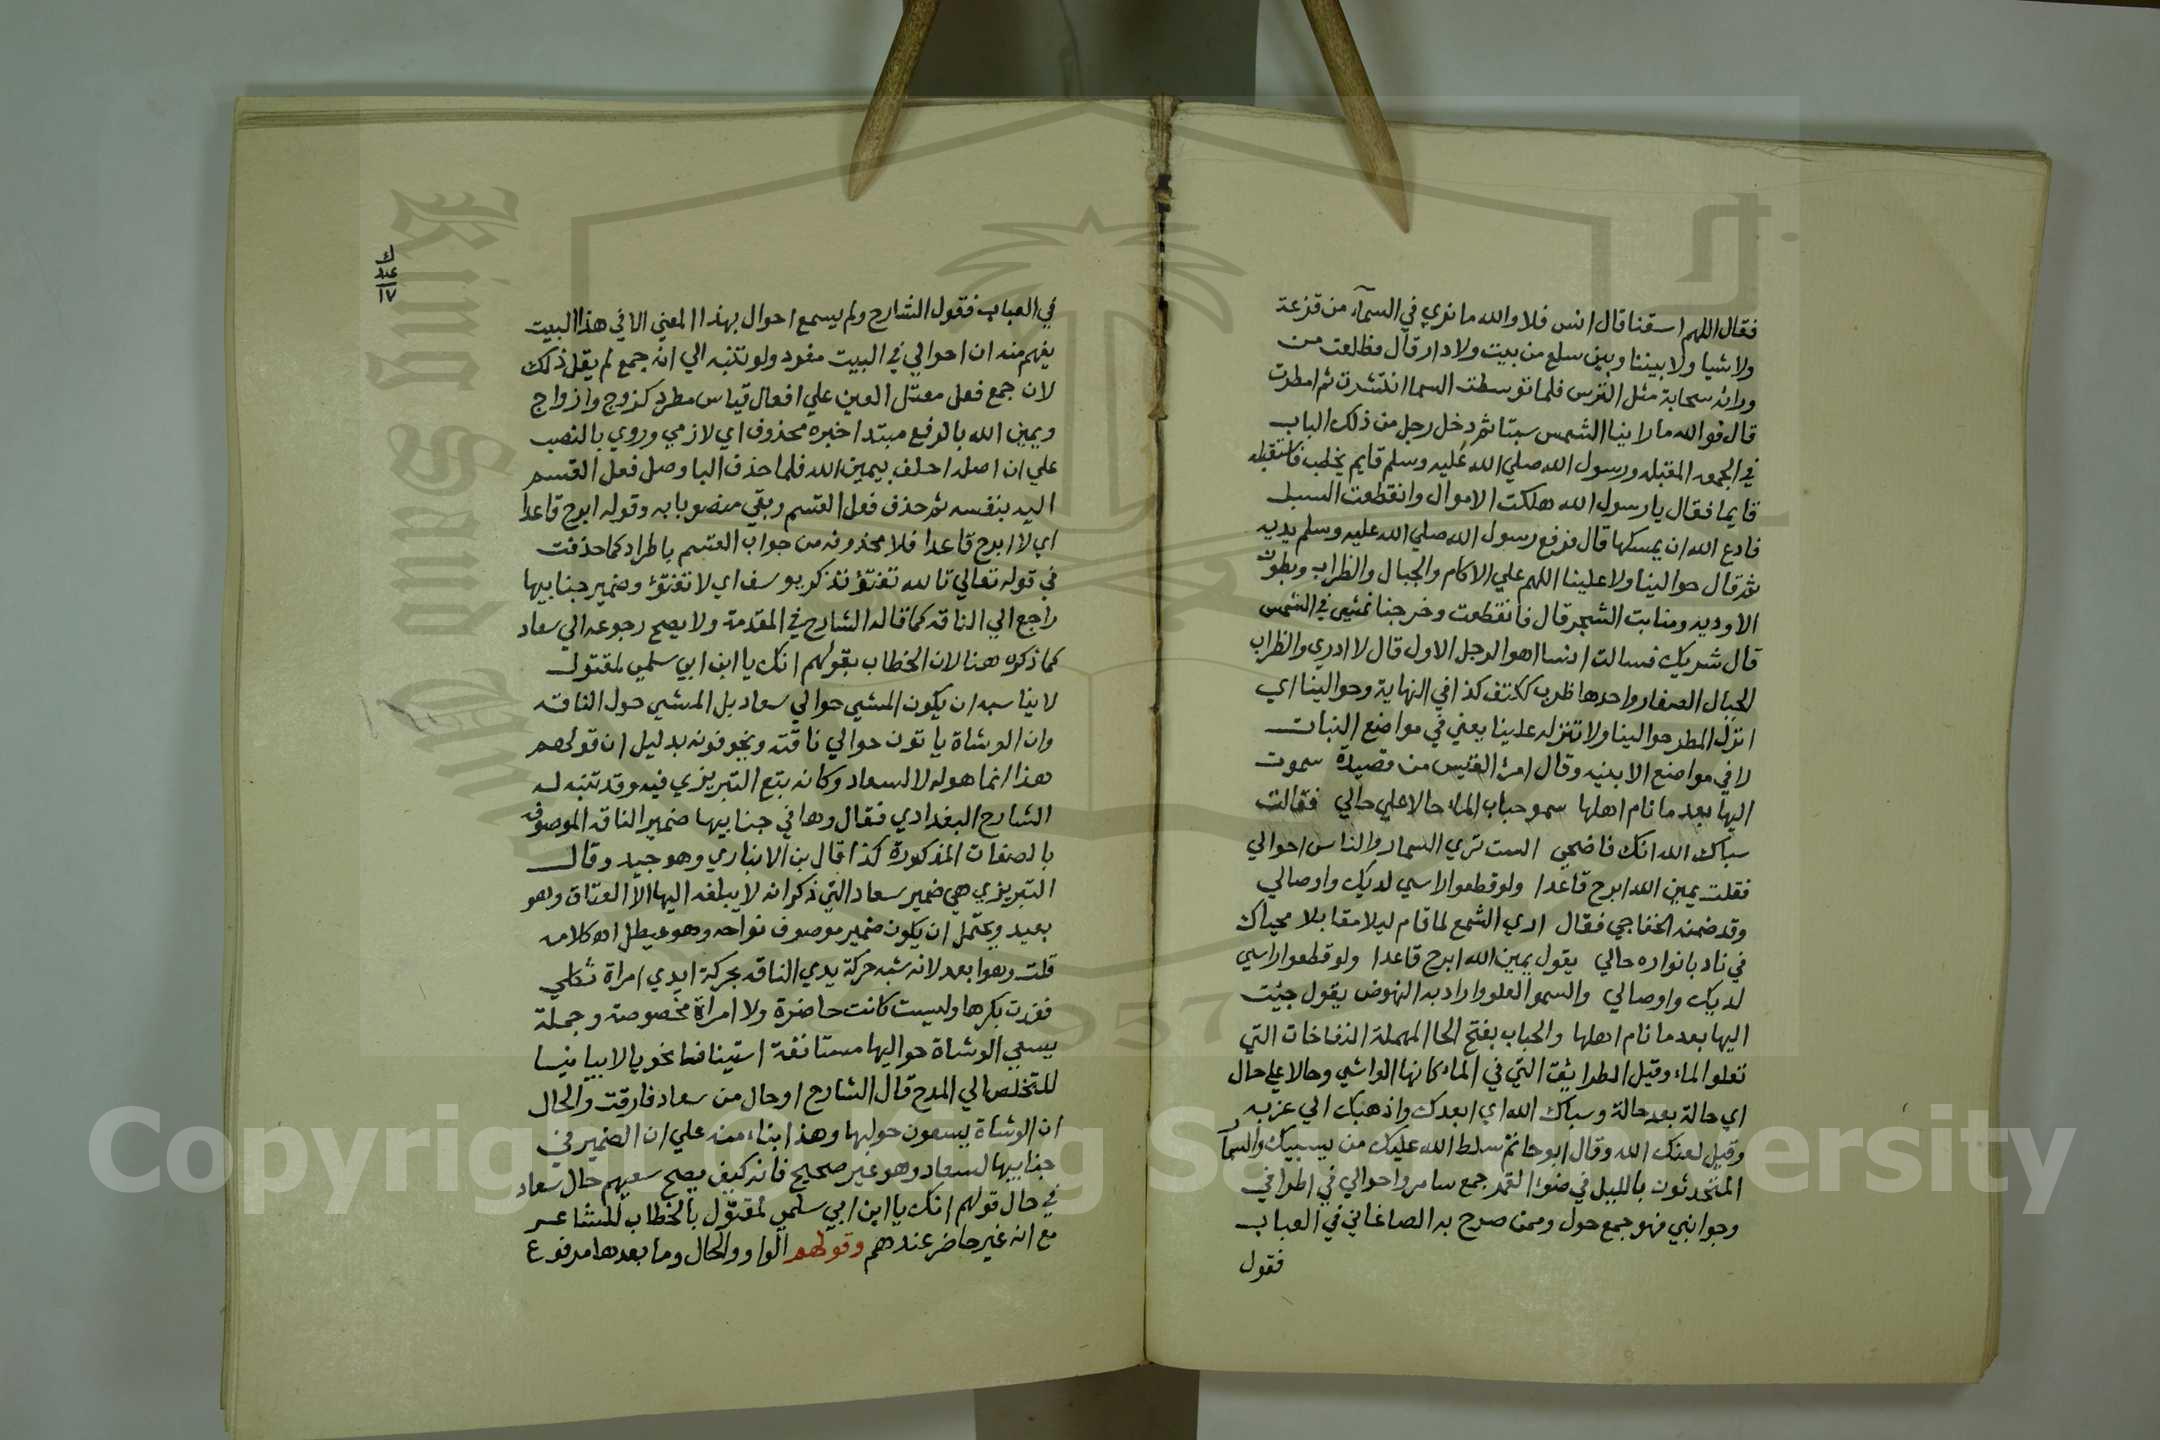 فقال اللهم اسقنا قال انس فلا والله ما نري في السمآء من قزعة
ولا شيا ولا بيننا وبين سلع من بيت ولا دار قال فطلعت من
ورائه سحابة مثل الترس فلما توسطت السما انتشرت ثم امطرت
قال فوالله ما راينا الشمس سبتا ثم دخل رجل من ذلك الباب
في الجمعه المقبله ورسول الله صلي الله عليه وسلم قايم يخطب فاستقبله
قايما فقال يا رسول الله هلكت الاموال وانقطعت السبل
فادع الله ان يمسكها قال فرفع رسول الله صلي الله عليه وسلم يديه
ثم قال حوالينا ولا علينا اللهم علي الاكام والجبال والظراب وبطون
الاوديه ومنابت الشجر قال فانقطعت وخرجنا نمشي في الشمس
قال شريك فسالت انسا اهو الرجل الاول قال لا ادري والظراب
الجبال الصغار واحدها ظرب ككتف كذا في النهاية وحوالينا اي
انزل المطر حوالينا ولا تنزله علينا يعني في مواضع النبات
لا في مواضع الابنيه وقال امرؤ القيس من قصيدة سموت
اليها بعد ما نام اهلها سمو حباب الماء حالا علي حالي فقالت
سباك الله انك فاضحي الست تري السمار والناس احوالي
فقلت يمين الله ابرح قاعدا ولو قطعوا راسي لديك واوصالي
وقد ضمنه الخفاجي فقال ادي الشمع لما قام ليلا مقابلا محياك
في ناد بانواره حالي يقول يمين الله ابرح قاعدا ولو قطعوا راسي
لديك واوصالي والسمو العلو واراد به النهوض يقول جيت
اليها بعد ما نام اهلها والحباب بفتح الحا المهملة النفاخات التي
تعلو الماء وقيل الطرايق التي في الماء كانها الواشي وحالا علي حال
اي حالة بعد حالة وسباك الله اي ابعدك واذهبك الي غربه
وقيل لعنك الله وقال ابو حاتم سلط الله عليك من يسبيك والسمآر
المتحدثون بالليل في ضوء القمر جمع سامر واحوالي في اطرافي
وجوانبي فهو جمع حول وممن صرح به الصاغاني في العباب
فقول
ك
عند
١٧
في العباب فقول الشارح ولم يسمع احوال بهذا المعني الا في هذا البيت
يفهم منه ان احوالي في البيت مفرد ولو تنبه الي انه جمع لم يقل ذلك
لان جمع فعل معتل العين علي افعال قياس مطرد كزوج وازواج
ويمين الله بالرفع مبتدا خبره محذوف اي لازمي وروي بالنصب
علي ان اصله احلف بيمين الله فلما حذف البا وصل فعل القسم
اليه بنفسه ثم حذف فعل القسم وبقي منصوبا به وقوله ابرح قاعدا
اي لا ابرح قاعدا فلا محذوفه من جواب القسم باطراد كما حذفت
في قوله تعالي تالله تفتؤ تذكر يوسف اي لا تفتؤ وضمير جنابيها
راجع الي الناقه كما قاله الشارح في المقدمة ولا يصح رجوعه الي سعاد
كما ذكره هنا لان الخطاب بقولهم انك يا ابن ابي سلمي لمقتول
لا يناسبه ان يكون المشي حوالي سعاد بل المشي حول الناقه
وان الوشاة ياتون حوالي ناقته ويخوفونه بدليل ان قولهم
هذا انما هو له لا لسعاد وكانه تبع التبريزي فيه وقد تنبه له
الشارح البغدادي فقال وها في جنابيها ضمير الناقه الموصوفه
بالصفات المذكورة كذا قال بن الانباري وهو جيد وقال
التبريزي هي ضمير سعاد التي ذكر انه لا يبلغه اليها الا العتاق وهو
بعيد ويحتمل ان يكون ضمير موصوف نواحه وهو عيطل اه كلامه
قلت وهو ابعد لانه شبه حركة يدي الناقه بحركة ايدي امراة ثكلي
فقدت بكرها وليست كانت حاضرة ولا امراة مخصوصة وجملة
يسعي الوشاة حواليها مستانفة استينافا نحويا لا بيانيا
للتخلص الي المدح قال الشارح او حال من سعاد فارقت والحال
ان الوشاة يسعون حوليها وهذا بناء منه علي ان الضمير في
جنابيها لسعاد وهو غير صحيح فانه كيف يصح سعيهم حال سعاد
في حال قولهم انك يا ابن ابي سلمي لمقتول بالخطاب للشاعر
مع انه غير حاضر عندهم وقولهم الواو والحال وما بعدها مرفوع
King Saud University
1957
Copyright © King Saud University